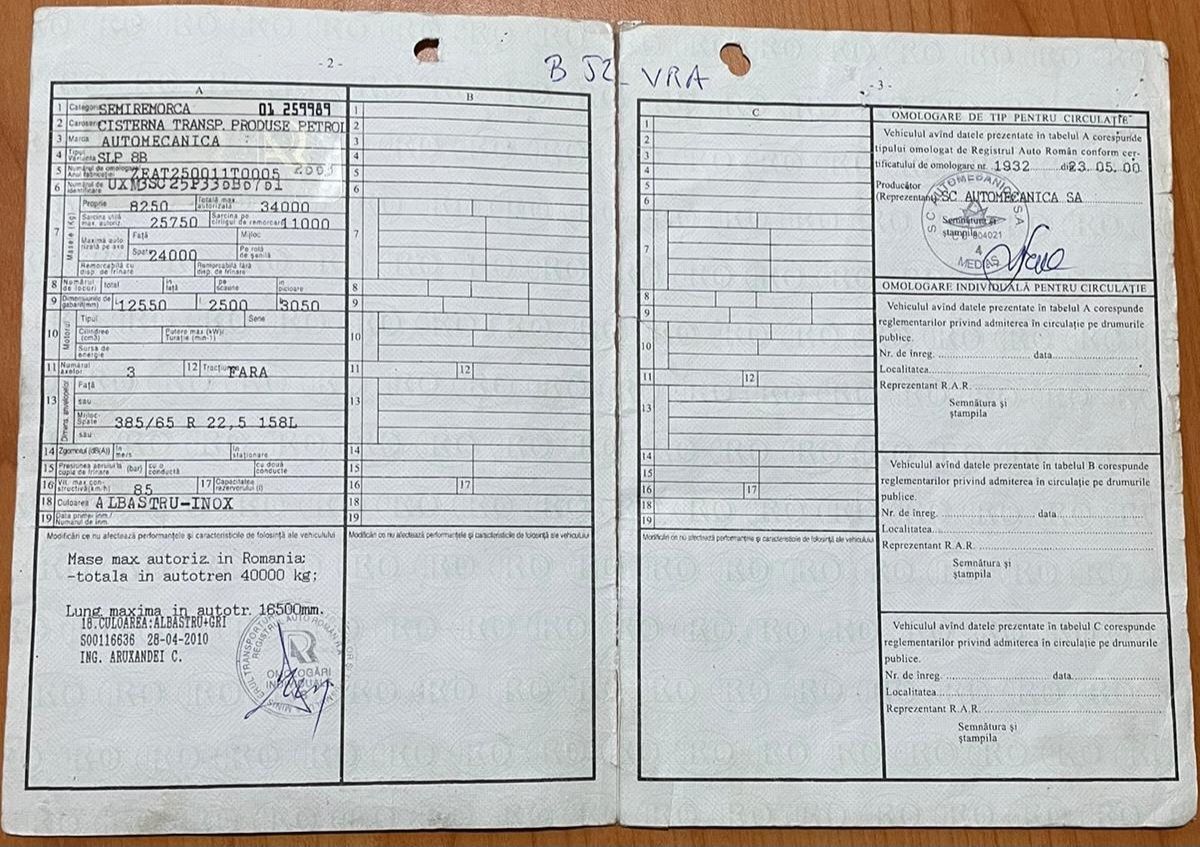 - 2 -
B 52 VRA
A
B
1 Categoria SEMIREMORCA 01 259989
2 Caroseria CISTERNA TRANSP. PRODUSE PETROL
3 Marca AUTOMECANICA
4 Tipul Varianta SLP 8B
5 Numărul de omologare Anul fabricaţiei ZEAT250011T0005
6 Numărul de identificare
7 Masele (Kg)
Proprie 8250 Totală max. autorizată 34000
Sarcina utilă max. autoriz. 25750 Sarcina pe cîrligul de remorcare 11000
Maximă auto rizată pe axe Faţă Mijloc
Spate 24000 Pe rolă de şenilă
Remorcabilă cu disp. de frînare Remorcabilă fără disp. de frînare
8 Numărul de locuri total în faţă pe scaune în picioare
9 Dimensiunile de gabarit(mm) L 12550 l 2500 h 3050
10 Motorul
Tipul Serie
Cilindree (cm3) Putere max (kW)/ Turaţie (min-1)
Sursa de energie
11 Numărul axelor 3 12 Tracţiune FARA
13 Dimens. anvelopelor
Faţă
sau
Mijloc Spate 385/65 R 22,5 158L
sau
14 Zgomotul (dB(A)) în mers în staţionare
15 Presiunea aerului la cupla de frînare (bar) cu o conductă cu două conducte
16 Vit. max con- structivă(km/h) 85 17 Capacitatea rezervorului (l)
18 Culoarea ALBASTRU-INOX
19 Data primei înm./ Numărul de înm.
Modificări ce nu afectează performanţele şi caracteristicile de folosinţă ale vehiculului
Mase max autoriz. in Romania:
-totala in autotren 40000 kg;
Lung maxima in autotr. 16500mm.
18.CULOAREA:ALBASTRU+GRI
S00116636 28-04-2010
ING. ARUXANDEI C.
REGISTRUL AUTO ROMÂN R.A.
OMOLOGĂRI
INDIVIDUALE
1
2
3
4
5
6
7
8
9
10
11 12
13
14
15
16 17
18
19
Modificări ce nu afectează performanţele şi caracteristicile de folosinţă ale vehiculului
- 3 -
C
1
2
3
4
5
6
7
8
9
10
11 12
13
14
15
16 17
18
19
Modificări ce nu afectează performanţele şi caracteristicile de folosinţă ale vehiculului
OMOLOGARE DE TIP PENTRU CIRCULAŢIE
Vehiculul avînd datele prezentate în tabelul A corespunde
tipului omologat de Registrul Auto Român conform cer-
tificatului de omologare nr. 1932 din 23. 05. 00
Producător
(Reprezentant) SC AUTOMECANICA SA
Semnătura şi
ştampila
S C AUTOMECANICA SA
4
MEDIAŞ
OMOLOGARE INDIVIDUALĂ PENTRU CIRCULAŢIE
Vehiculul avînd datele prezentate în tabelul A corespunde
reglementarilor privind admiterea în circulaţie pe drumurile
publice.
Nr. de înreg. data
Localitatea
Reprezentant R.A.R.
Semnătura şi
ştampila
Vehiculul avînd datele prezentate în tabelul B corespunde
reglementarilor privind admiterea în circulaţie pe drumurile
publice.
Nr. de înreg. data
Localitatea
Reprezentant R.A.R.
Semnătura şi
ştampila
Vehiculul avînd datele prezentate în tabelul C corespunde
reglementarilor privind admiterea în circulaţie pe drumurile
publice.
Nr. de înreg. data
Localitatea
Reprezentant R.A.R.
Semnătura şi
ştampila